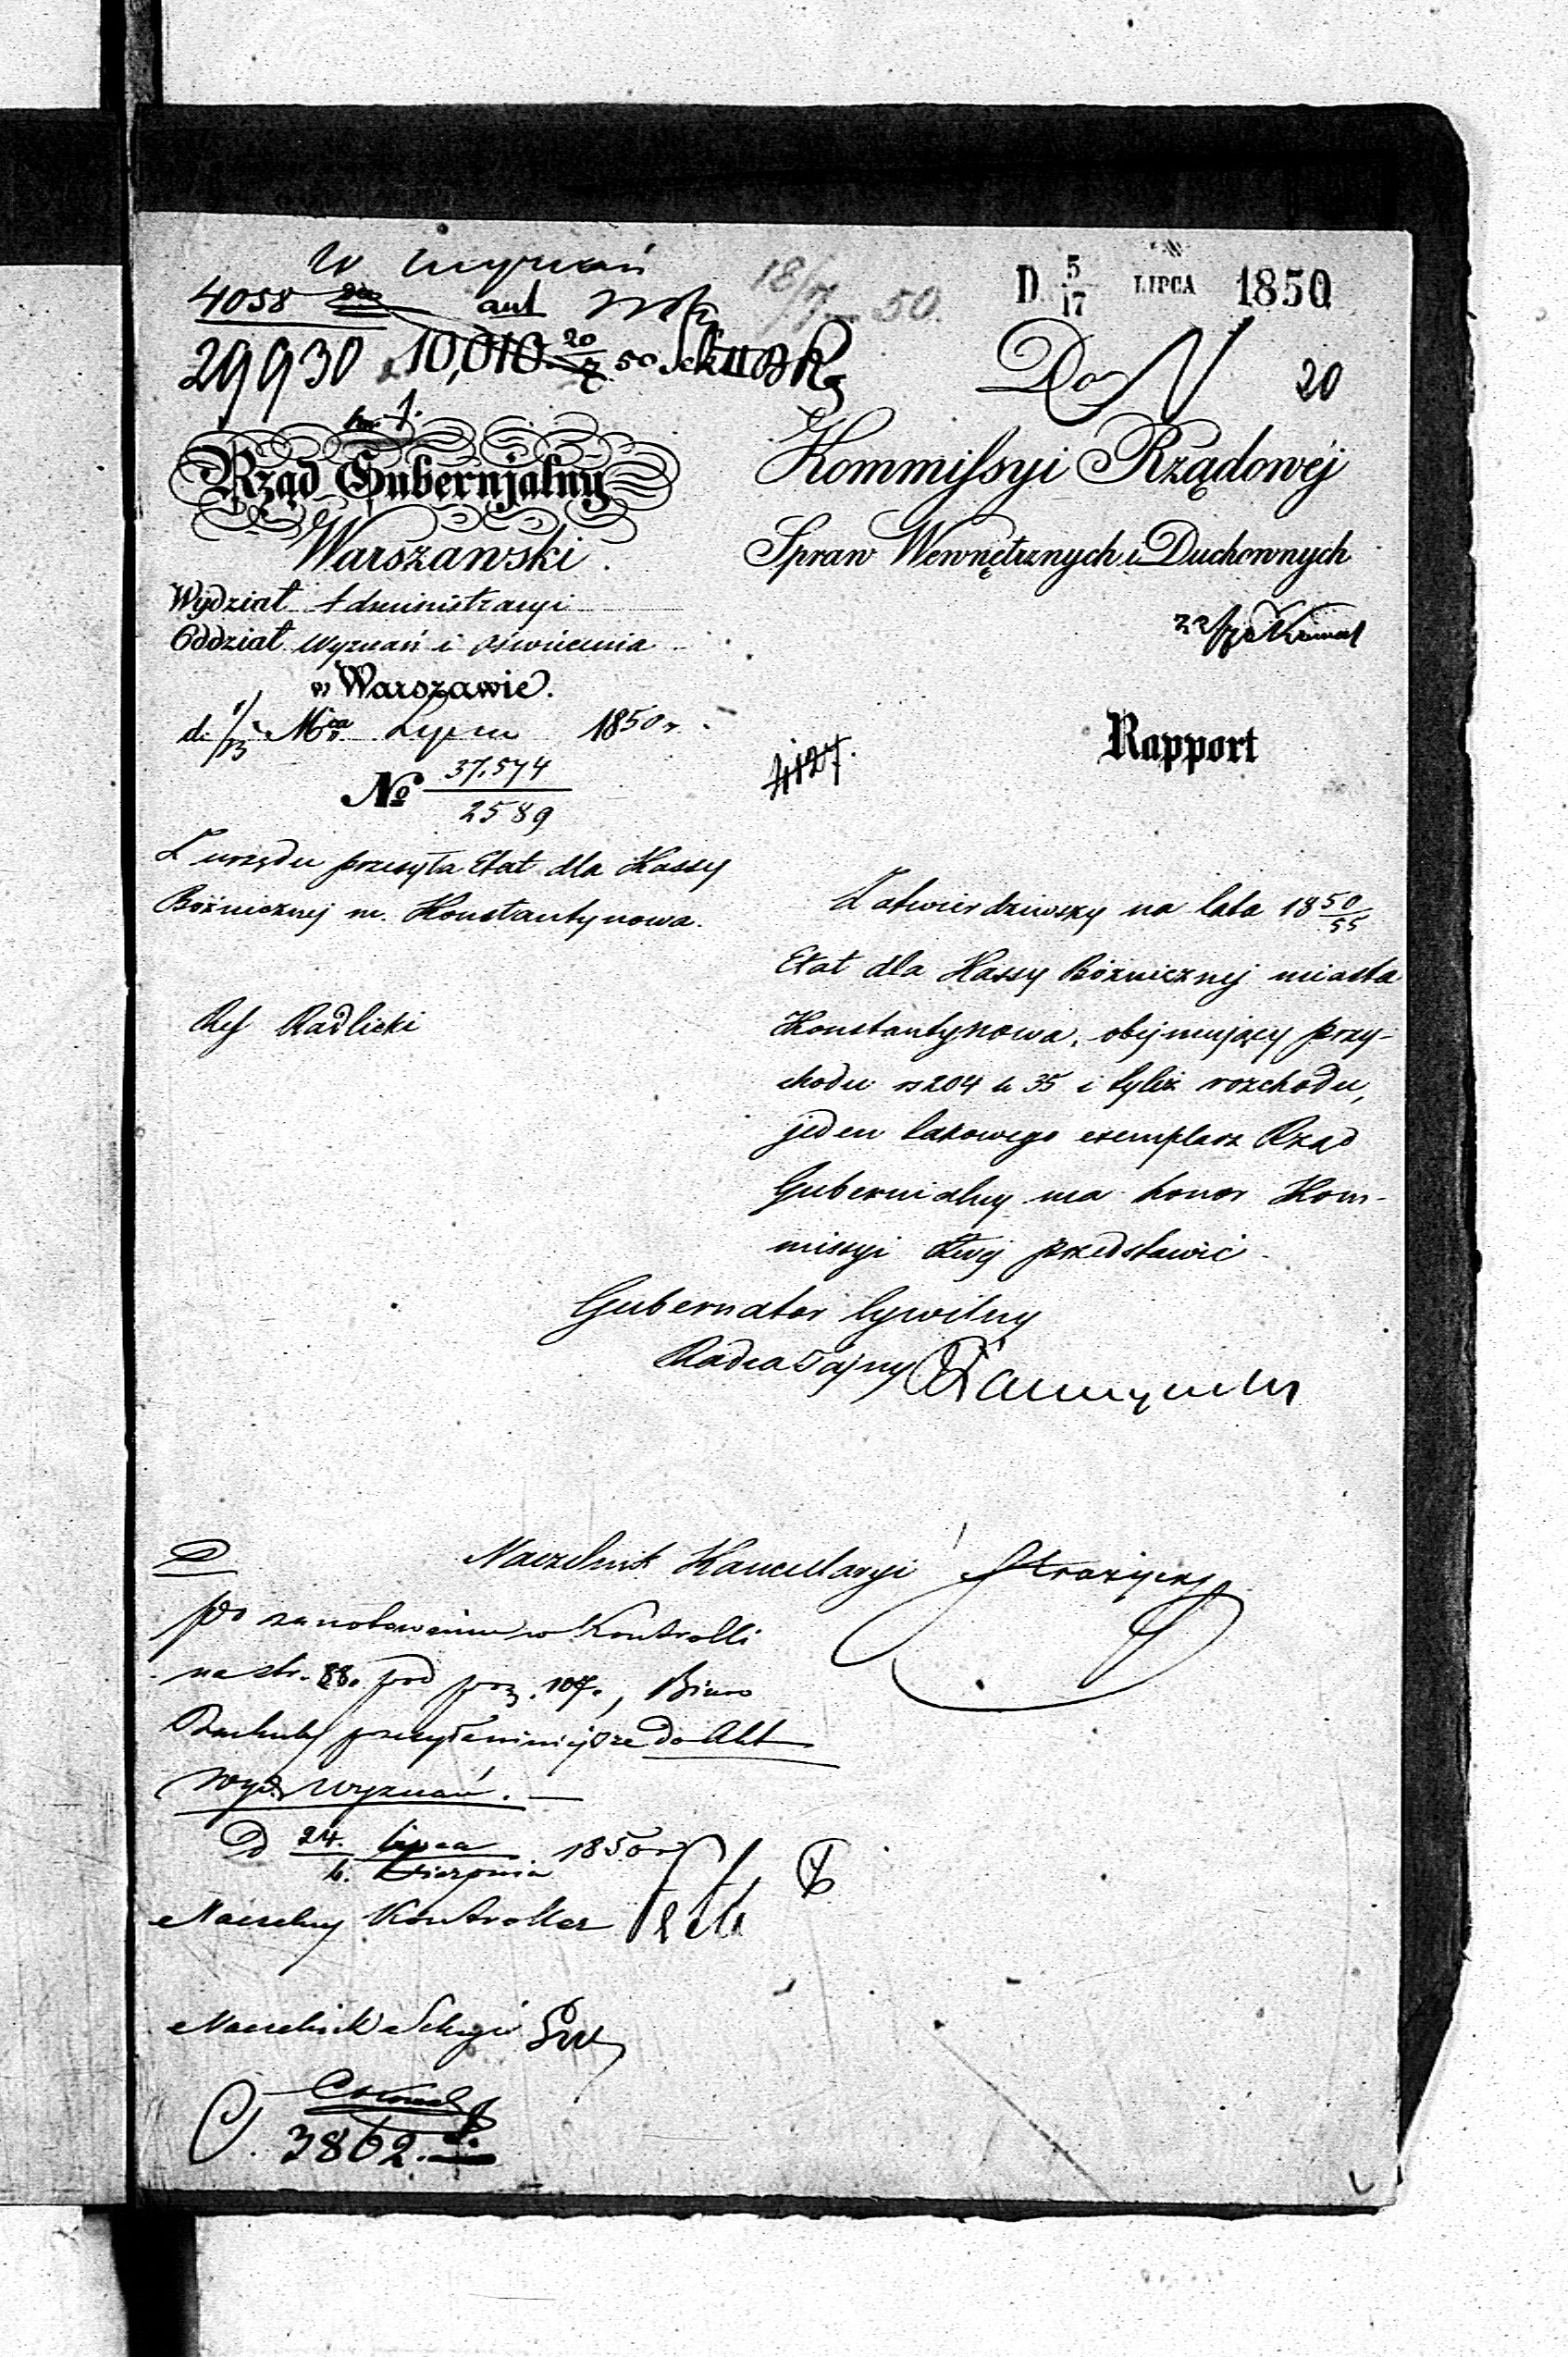 W Wyznań
4058
29930 10,010 20/7 50
18/7 50.
D. 5/17 LIPCA 1850
Do N 20
Rząd Gubernjalny
Warszawski.
Wydział Administracyi
Oddział Wyznań i Oświecenia
w Warszawie.
d. 1/13 Mca Lipca 1850 r.
No 37,574
2589
Z urzędu przesyła Etat dla Kassy
Bóżnicznej m. Konstantynowa.
Ref Radlicki
Kommissyi Rządowéj
Spraw Wewnętrznych i Duchownych
Rapport
4127.
Zatwierdziwszy na lata 1850/55
Etat dla Kassy Bóżnicznej miasta
Konstantynowa, obejmujący przy-
chodu rs 204 k 35 i tyleż rozchodu,
jeden takowego exemplarz Rząd
Gubernialny ma honor Kom-
missyi Rwej przedstawić.
Gubernator Cywilny
Radca Tajny
Naczelnik Kancellaryi
D
po zanotowaniu w Kontrolli
na str. 88. pod poz. 107., Biuro
przesyła niniejsze do Akt
Wydz Wyznań.
D 24. Lipca 1850 r
Sierpnia
Naczelny Kontroller
Naczelnik Sekcyi
3862.